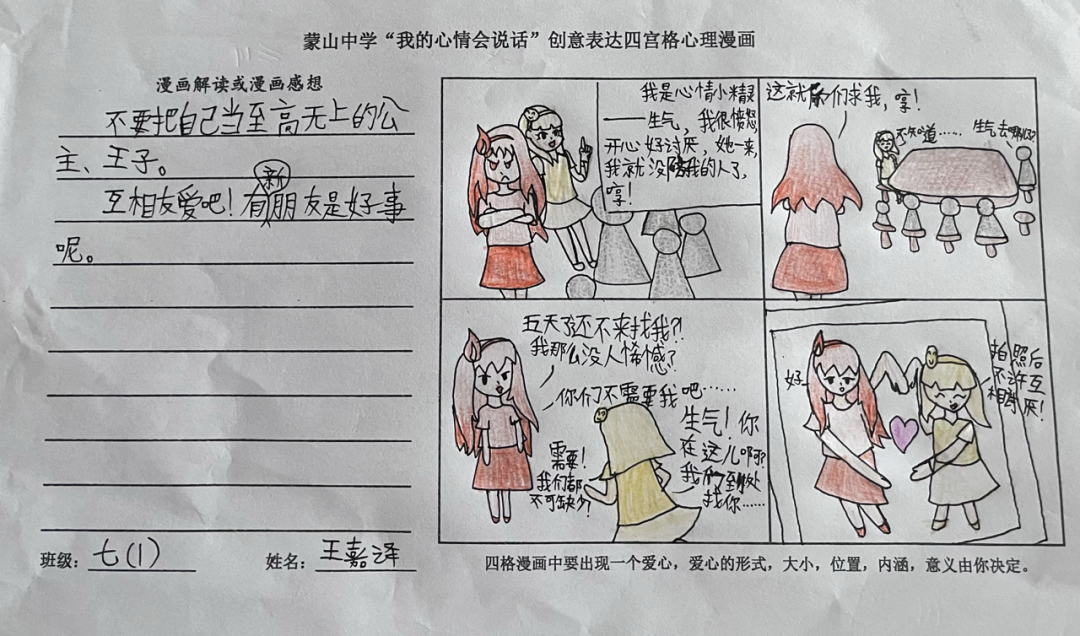 蒙山中学“我的心情会说话”创意表达四宫格心理漫画
漫画解读或漫画感想
不要把自己当至高无上的公
主、王子。
互相友爱吧！有新朋友是好事
呢。
班级：七(1)
姓名：王嘉泽
我是心情小精灵
——生气，我很愤怒，
开心好讨厌，她一来，
我就没陪我的人了，
哼！
这就你们求我，哼！
不知道……
生气去哪儿了？
五天了还不来找我？！
我那么没人稀憾？
你们不需要我吧……
需要！
我们都
不可缺少！
生气！你
在这儿啊？
我们到处
找你……
好
拍照后
不许互
相讨厌！
四格漫画中要出现一个爱心，爱心的形式，大小，位置，内涵，意义由你决定。